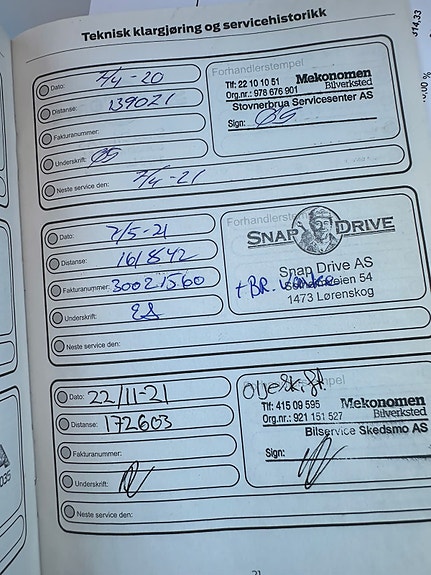 Teknisk klargjøring og servicehistorikk
Dato: 7/4-20
Distanse: 139021
Fakturanummer:
Underskrift: ØS
Neste service den: 7/4-21
Forhandlerstempel
Tlf: 22 10 10 51 Mekonomen
Org.nr.: 978 676 901 Bilverksted
Stovnerbrua Servicesenter AS
Sign: ØS
Dato: 7/5-21
Distanse: 161842
Fakturanummer: 30021560
Underskrift:
Neste service den:
SNAP DRIVE
Snap Drive AS
54
1473 Lørenskog
+ BR. væske
Dato: 22/11-21
Distanse: 172603
Fakturanummer:
Underskrift:
Neste service den:
Oljeskift
Tlf: 415 09 595 Mekonomen
Org.nr.: 921 151 527 Bilverksted
Bilservice Skedsmo AS
Sign:
314,33
21